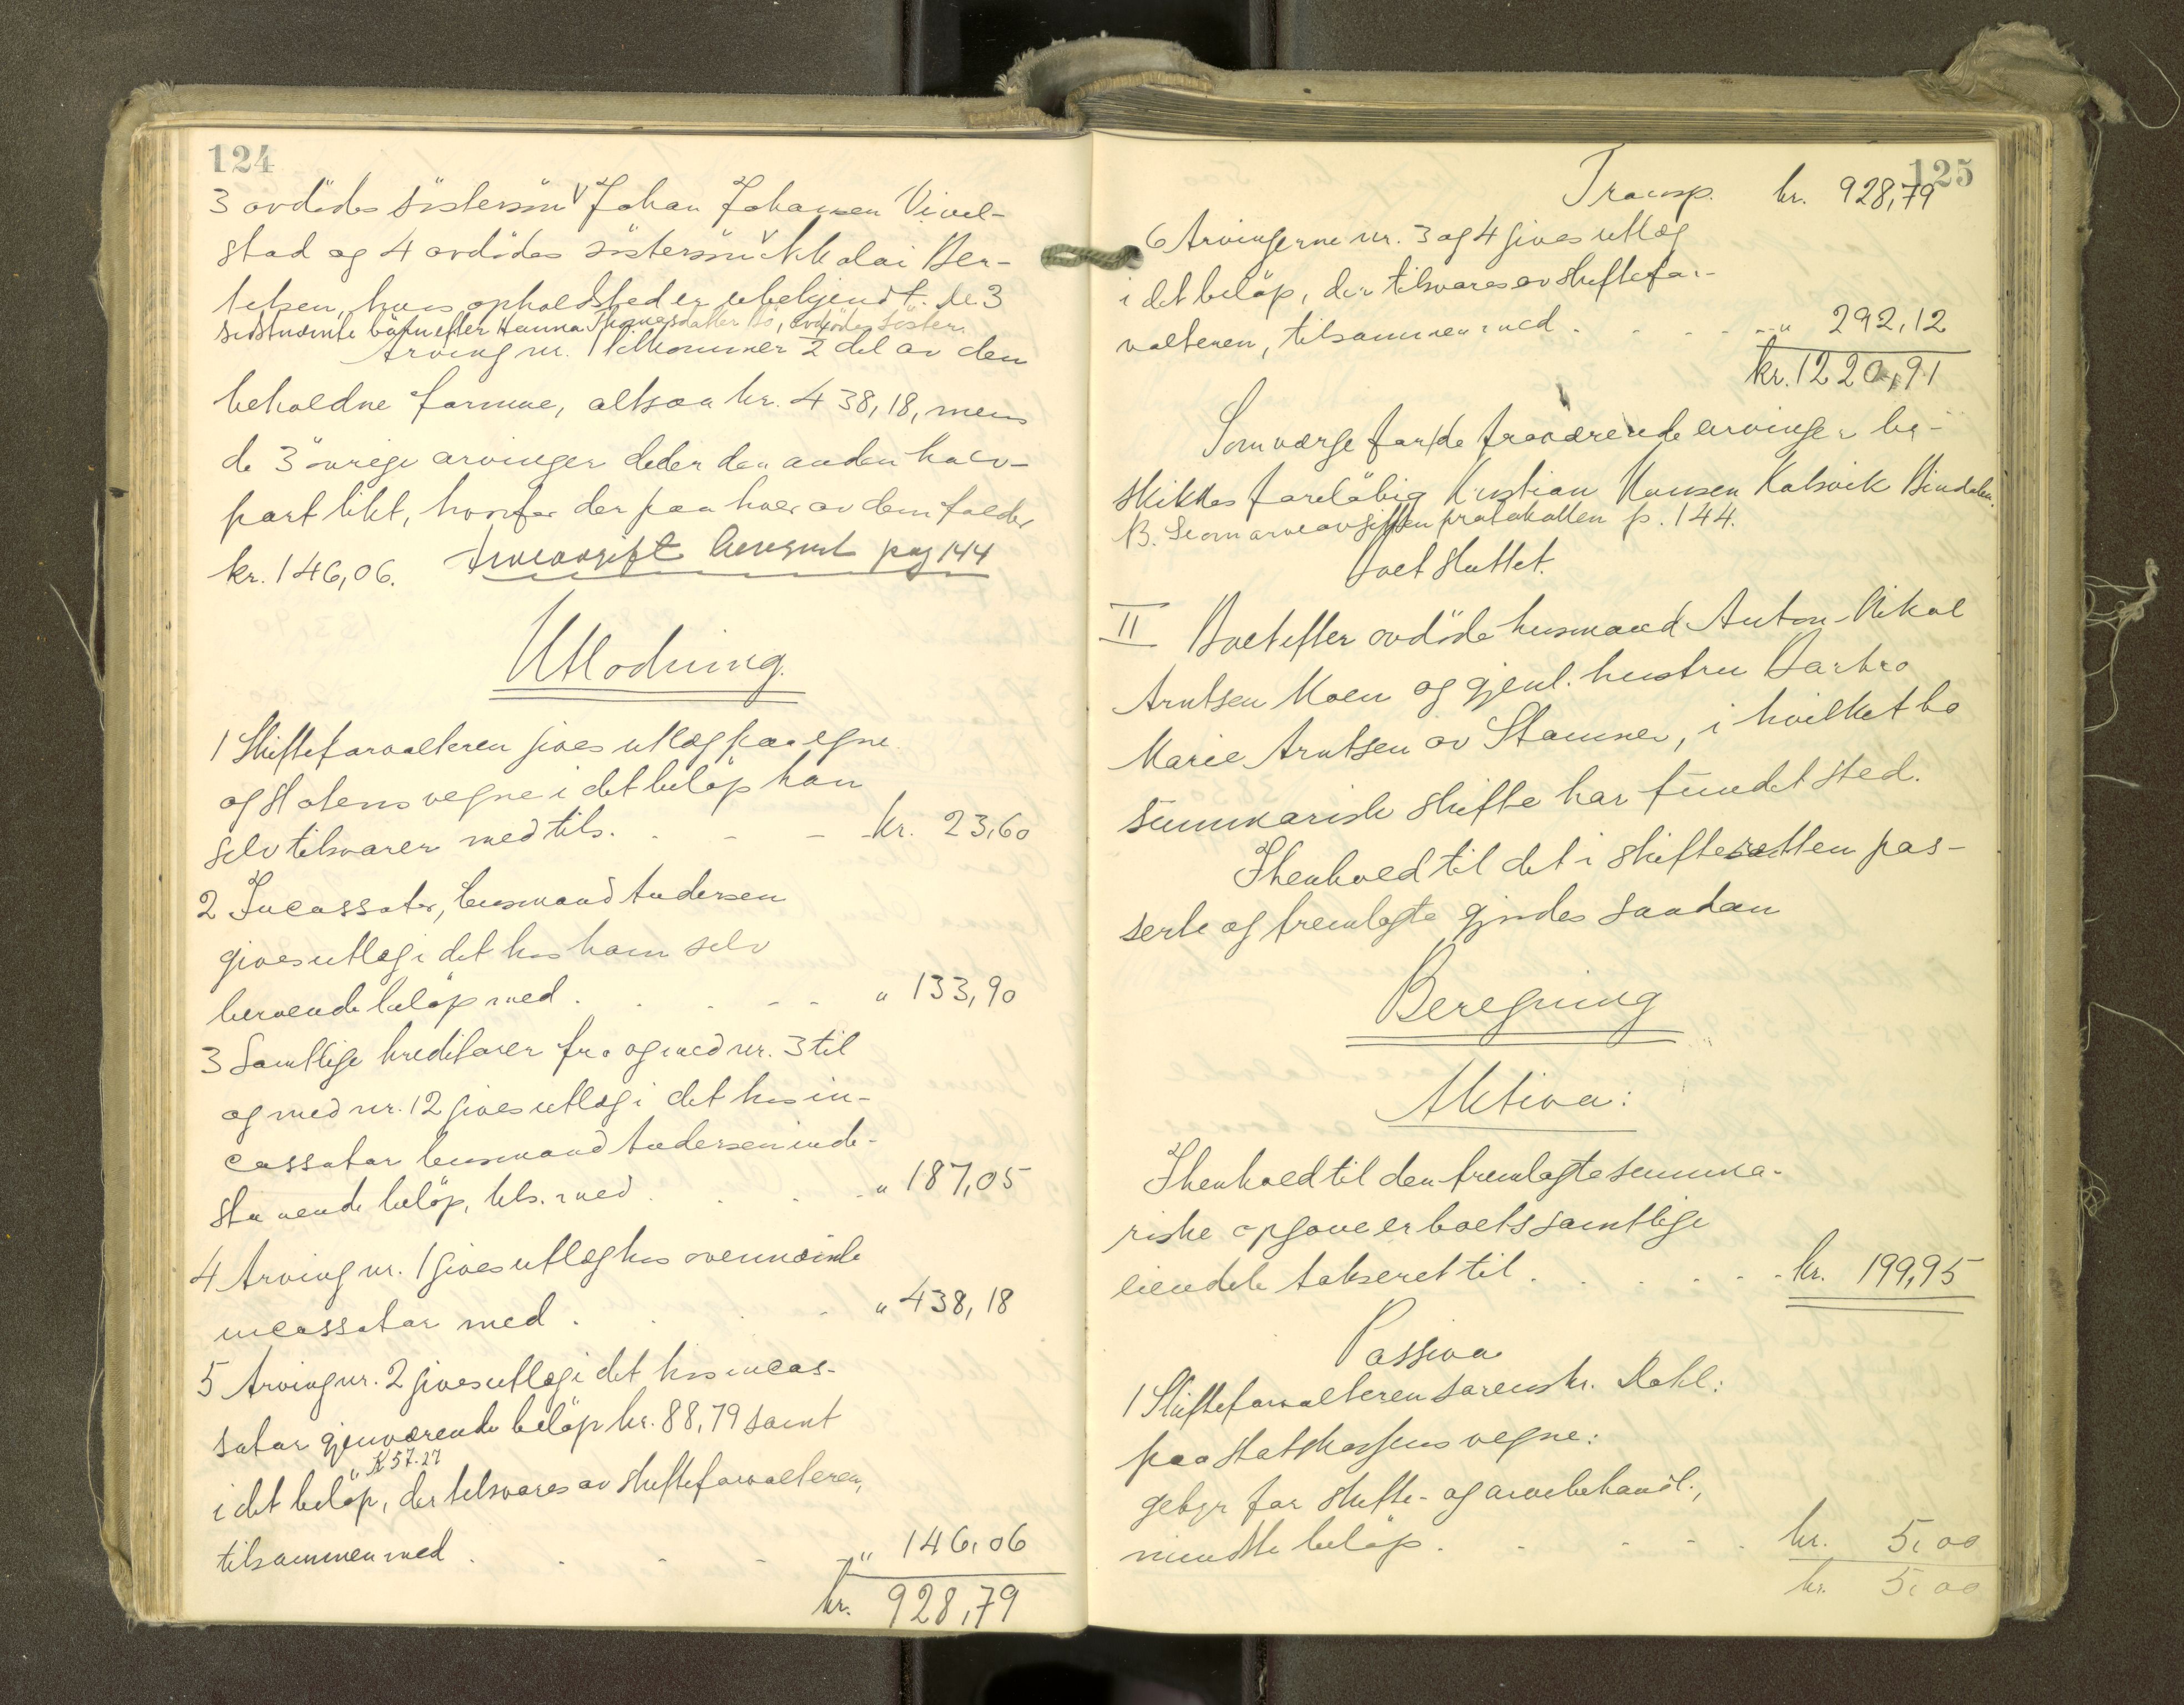 124
3 avdödes söstersön Johan Johansen Vivel-
stad og 4 avdödes söstersön Nikolai Ber-
telsen, hvis opholdssted er ubekjendt. De 3
sidstnævnte börn efter Hanna Thomasdatter Bö, avdödes söster.
Arving nr. 1 tilkommer 1/2 del av den
beholdne formue, altsaa kr. 438,18, mens
de 3 övrige arvinger deler den anden halv-
part likt, hvorfor der paa hver av dem falder
kr. 146,06. Arveavgift beregnet pag 144
Utlodning.
1 Skifteforvalteren gives utlæg paa egne
og statens vegne i det belöp han
selv tilsvarer med tils. kr. 23,60
2 Incassator, lensmand Andersen
gives utlæg i det hos ham selv
beroende belöp med " 133,90
3 Samtlige kreditorer fra og med nr. 3 til
og med nr. 12 gives utlæg i det hos in-
cassator lensmand Andersen inde-
staaende belöp, tils. med " 187,05
4 Arving nr. 1 gives utlæg hos ovennævnte
incassator med " 438,18
5 Arving nr. 2 gives utlæg i det hos incas-
sator gjenværende belöp kr. 88,79 samt
K 57.27
i det belöp, der tilsvares av skifteforvalteren,
tilsammen med " 146,06
kr. 928,79
125
Transp. kr. 928,79
6 Arvingerne nr. 3 og 4 gives utlæg
i det belöp, der tilsvares av skiftefor-
valteren, tilsammen med " 292,12
kr. 1220,91
Som værge for de fraværende arvinger be-
skikkes foreløbig Kristian Hansen Kalsvik Bindalen.
B. Se om arveavgiften protokollen p. 144.
Boet sluttet.
II Boet efter avdöde husmand Anton Nikal
Arntsen Moen og gjenl. hustru Barbro
Marie Arntsen av Stamnes, i hvilket bo
summarisk skifte har fundet sted.
I henhold til det i skifteretten pas-
serte og fremlagte gjordes saadan
Beregning
Aktiva:
I henhold til den fremlagte summa-
riske opgave er boets samtlige
eiendele takseret til kr. 199,95
Passiva
1 Skifteforvalteren sorenskr. Dahl:
paa statskassens vegne:
gebyr for skifte- og arvebehandl.,
mindste belöp kr. 5,00
kr. 5,00